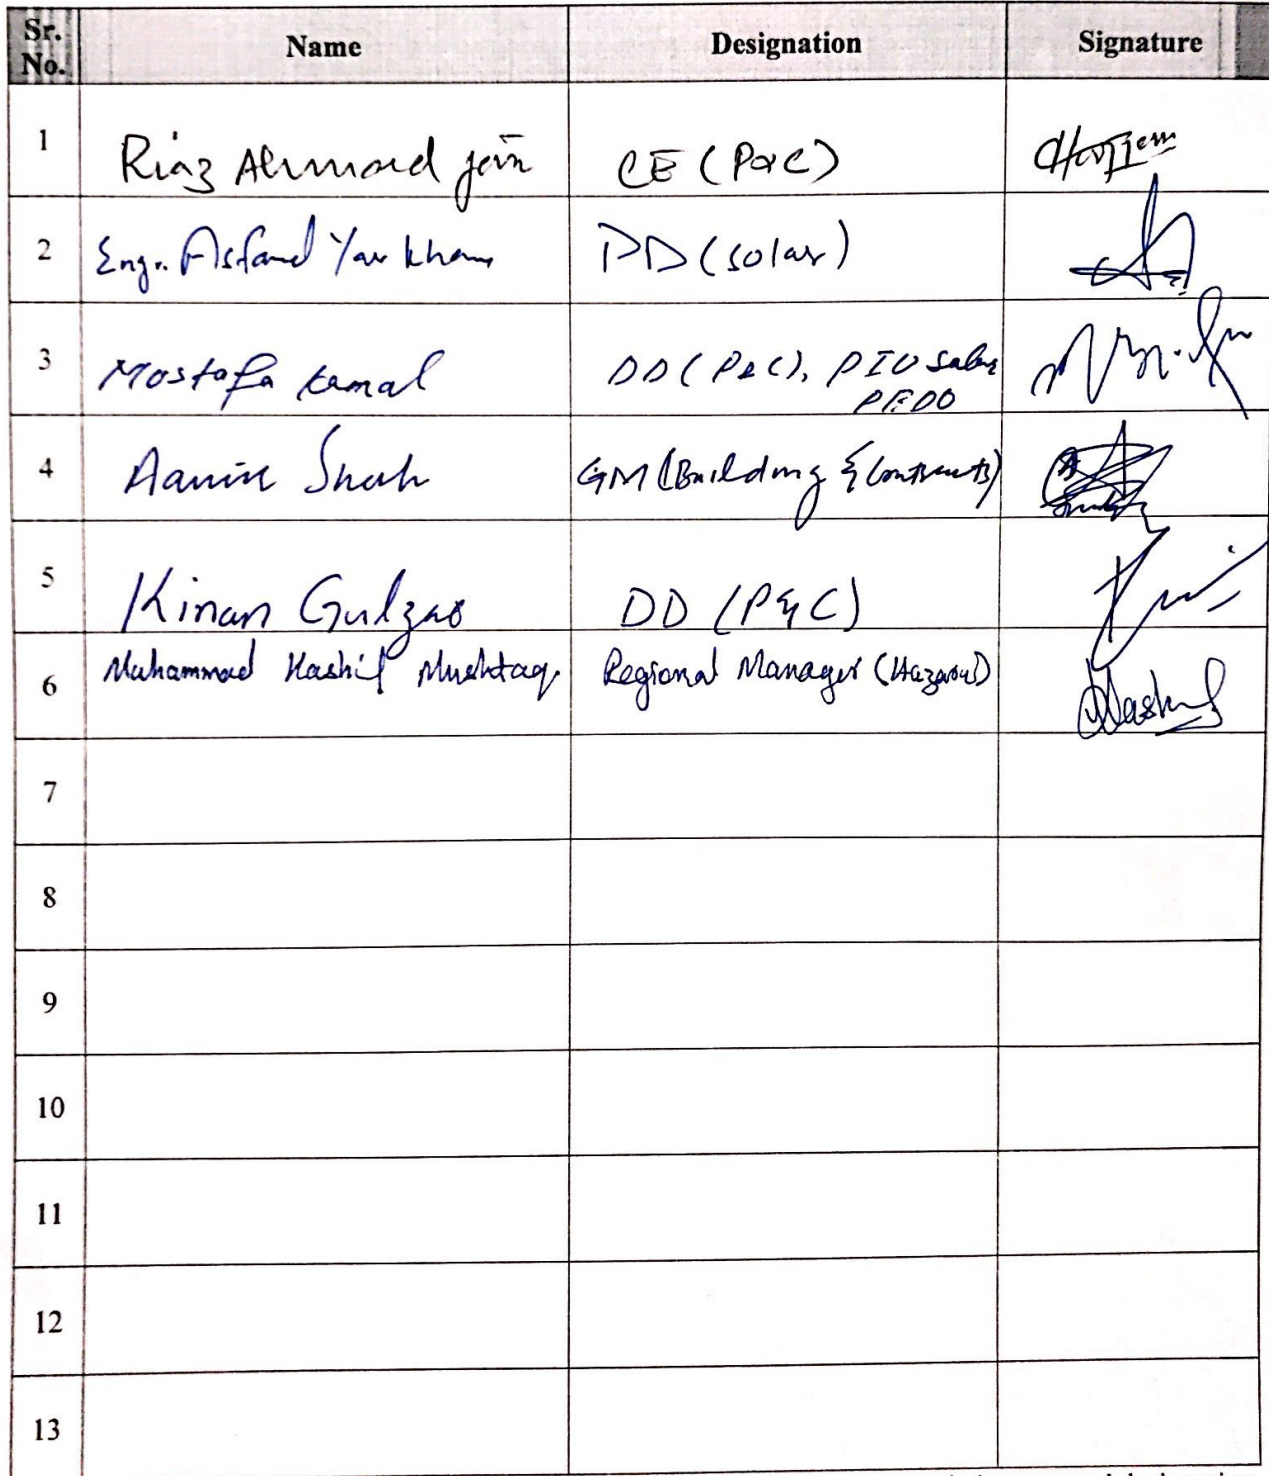 Sr. No. Name Designation Signature
1 Riaz Ahmad Jan CE (P&C)
2 Engr. Asfand Yar Khan DD (Solar)
3 Mostafa Kamal DD (P&C), PIU Solar
PEDO
4 Aamir Shah GM (Building & Contracts)
5 Kinan Gulzar DD (P&C)
6 Muhammad Kashif Mushtaq Regional Manager (Hazara)
7
8
9
10
11
12
13